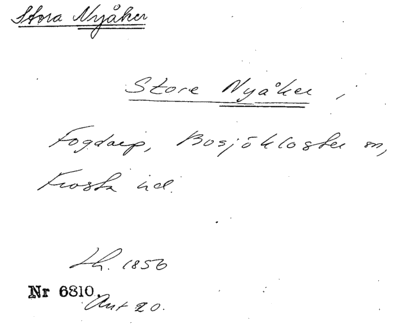 Stora Nyåker
Store Nyåker,
Fogdarp, Bosjökloster sn,
Frosta hd.
Lh. 1856
Nr 6810.
Ant 20.